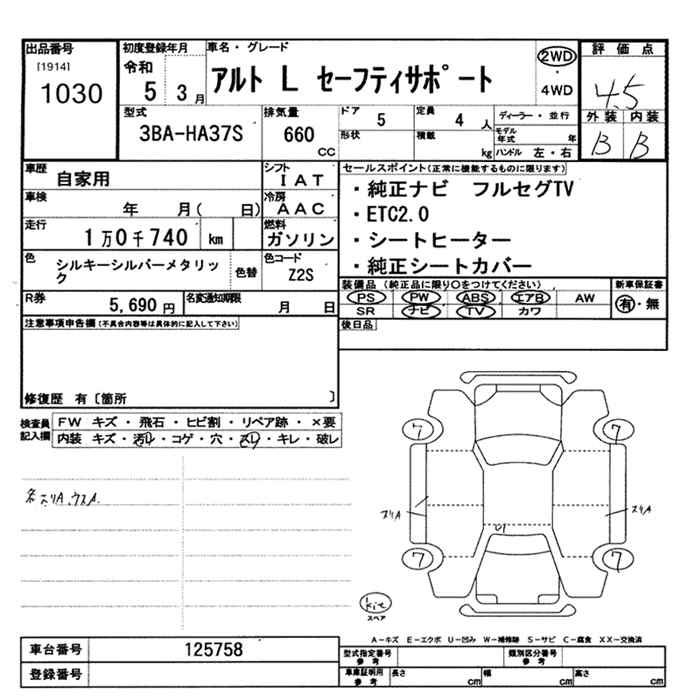 出品番号
[1914]
1030
初度登録年月
令和
5 3月
車名・グレード
アルト L セーフティサポート
2WD
・
4WD
評価点
4.5
外装 内装
B B
型式
3BA-HA37S
排気量
660
CC
ドア
5
定員
4 人
ディーラー・並行
形状
積載
kg
モデル年式 年
ハンドル 左・右
車歴
自家用
シフト
IAT
車検
年 月( 日)
冷房
AAC
走行
1万0千740 km
燃料
ガソリン
色
シルキーシルバーメタリック
色替
色コード
Z2S
R券
5,690 円
名変通知期限
月 日
セールスポイント(正常に機能するものに限ります)
・純正ナビ フルセグTV
・ETC2.0
・シートヒーター
・純正シートカバー
装備品(純正品に限り○をつけてください)
新車保証書
PS PW ABS エアB AW
SR ナビ TV カワ
有・無
後日品
注意事項申告欄(不具合内容等は具体的に記入して下さい)
修復歴 有〔箇所 〕
検査員記入欄
FW キズ・飛石・ヒビ割・リペア跡・×要
内装 キズ・汚レ・コゲ・穴・スレ・キレ・破レ
各スリA.ウスA.
7 7
スリA スリA
7 7
kit
スペア
A-キズ E-エクボ U-凹み W-補修跡 S-サビ C-腐食 XX-交換済
車台番号
125758
登録番号
型式指定番号 参考
類別区分番号 参考
車庫証明用 参考
長さ cm
幅 cm
高さ cm